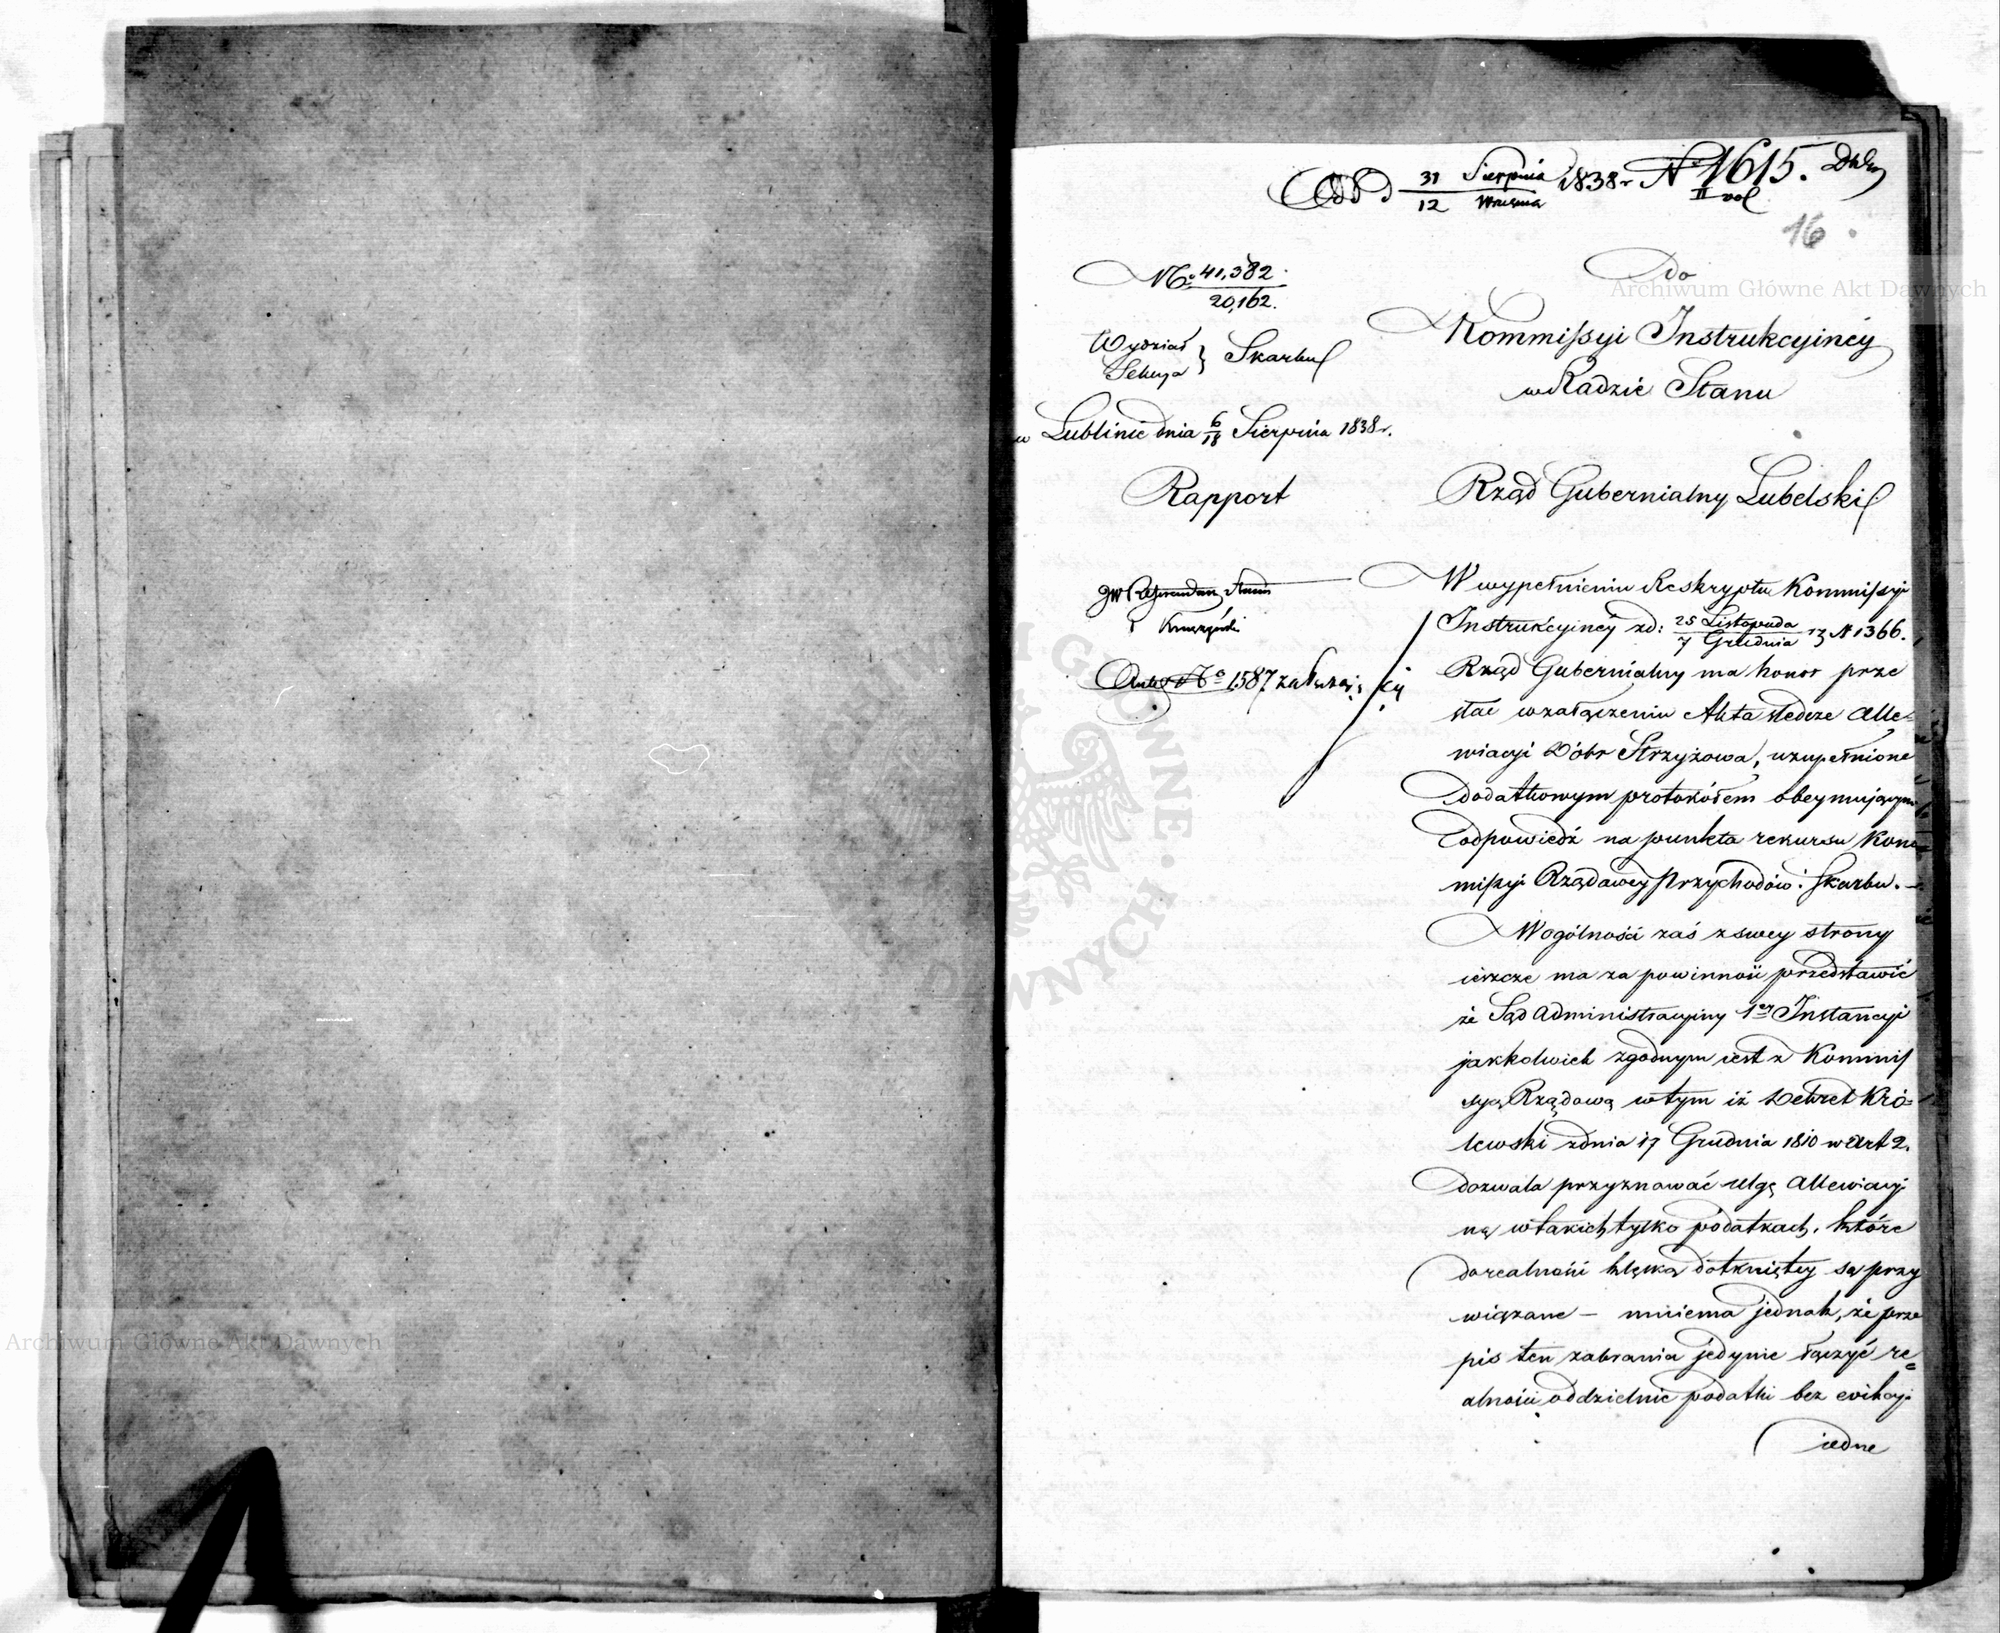 Odd 31 Sierpnia / 12 Września 1838 r № 1615.
II vol
16
№ 41,382 / 20,162.
Wydział
Sekcya } Skarbu
w Lublinie dnia 6/18 Sierpnia 1838 r.
Rapport
JW Referendarz Stanu
№ 1587 załączaią się
Do
Kommissyi Instrukcyinéy
w Radzie Stanu
Rząd Gubernialny Lubelski
W wypełnieniu Reskryptu Kommissyi
Instrukcyinéy zd: 25 Listopada / 7 Grudnia № 1366.
Rząd Gubernialny ma honor prze
słać w załączeniu Akta śledcze Alle-
wiacyi Dóbr Strzyżowa, uzupełnione
dodatkowym protokółem obeymuiącym
odpowiedź na punkta rekursu Kom
missyi Rządowey Przychodów i Skarbu. –
W ogólności zaś z swey strony
ieszcze ma za powinność przedstawić
że Sąd Administracyiny 1ey Instancyi
jakkolwiek zgodnym iest z Kommis
syą Rządową w tym iż Dekret Kró-
lewski z dnia 17 Grudnia 1810 w Art 2.
dozwala przyznawać ulgę Allewiacyi
ną w takich tylko podatkach, które
do realności klęską dotkniętey są przy
wiązane – mniema jednak, że prze
pis ten zabrania jedynie łączyć re=
alności oddzielnie podatki bez ewikcyi
iedne
Archiwum Główne Akt Dawnych
Archiwum Główne Akt Dawnych
ARCHIWUM GŁÓWNE · AKT DAWNYCH ·